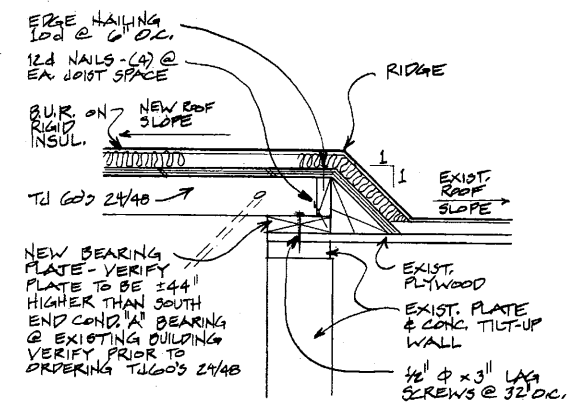 EDGE NAILING
10d @ 6" O.C.
12d NAILS - (4) @
EA. JOIST SPACE
RIDGE
B.U.R. ON
RIGID
INSUL.
NEW ROOF
SLOPE
1
1
EXIST.
ROOF
SLOPE
TJ 60'S 24/48
NEW BEARING
PLATE - VERIFY
PLATE TO BE ±44"
HIGHER THAN SOUTH
END COND. "A" BEARING
@ EXISTING BUILDING
VERIFY PRIOR TO
ORDERING TJ60'S 24/48
EXIST.
PLYWOOD
EXIST. PLATE
& CONC. TILT-UP
WALL
1/2" Φ x 3" LAG
SCREWS @ 32" O.C.